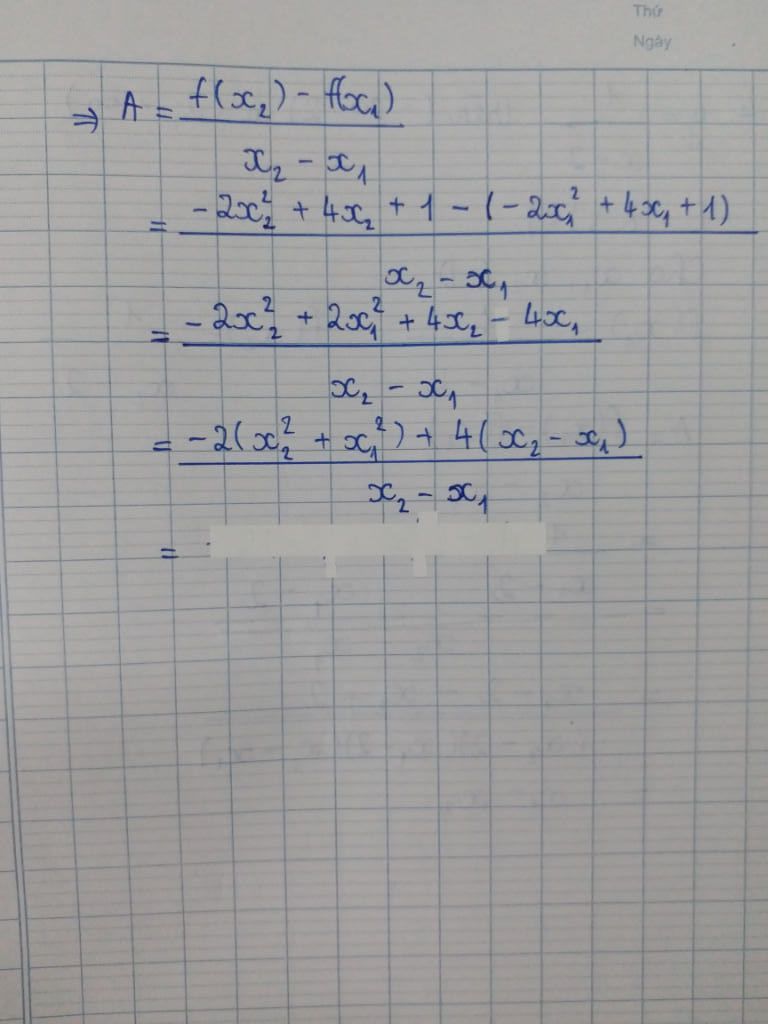 Thứ
Ngày
⇒ A = (f(x₂) - f(x₁)) / (x₂ - x₁)
= (-2x₂² + 4x₂ + 1 - (-2x₁² + 4x₁ + 1)) / (x₂ - x₁)
= (-2x₂² + 2x₁² + 4x₂ - 4x₁) / (x₂ - x₁)
= (-2(x₂² + x₁²) + 4(x₂ - x₁)) / (x₂ - x₁)
=